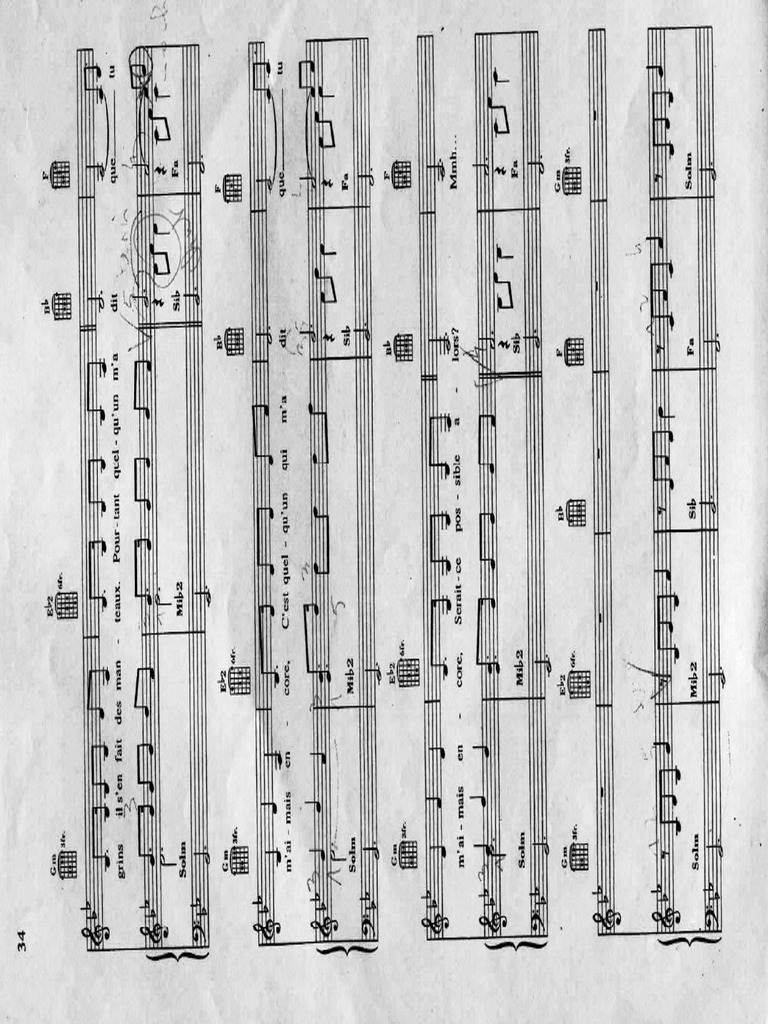 34
Gm 3fr. E♭2 6fr. B♭ F
grins il s'en fait des man - teaux. Pour - tant quel - qu'un m'a dit que tu
Solm Mi♭2 Si♭ Fa
Gm 3fr. E♭2 6fr. B♭ F
m'ai - mais en - core, C'est quel - qu'un qui m'a dit que tu
Solm Mi♭2 Si♭ Fa
Gm 3fr. E♭2 6fr. B♭ F
m'ai - mais en - core, Serait - ce pos - sible a - lors? Mmh...
Solm Mi♭2 Si♭ Fa
Gm 3fr. E♭2 6fr. B♭ F Gm 3fr.
Solm Mi♭2 Si♭ Fa Solm